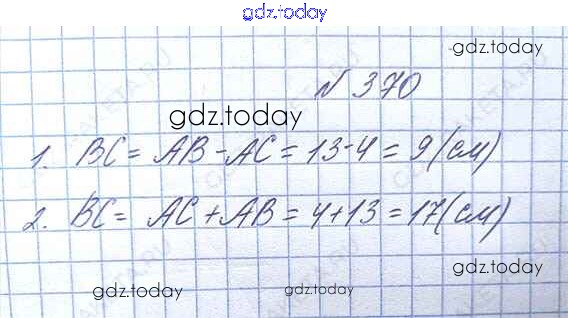 gdz.today
gdz.today
№ 370
gdz.today
1. BC = AB - AC = 13 - 4 = 9 (см)
2. BC = AC + AB = 4 + 13 = 17 (см)
gdz.today
gdz.today
gdz.today